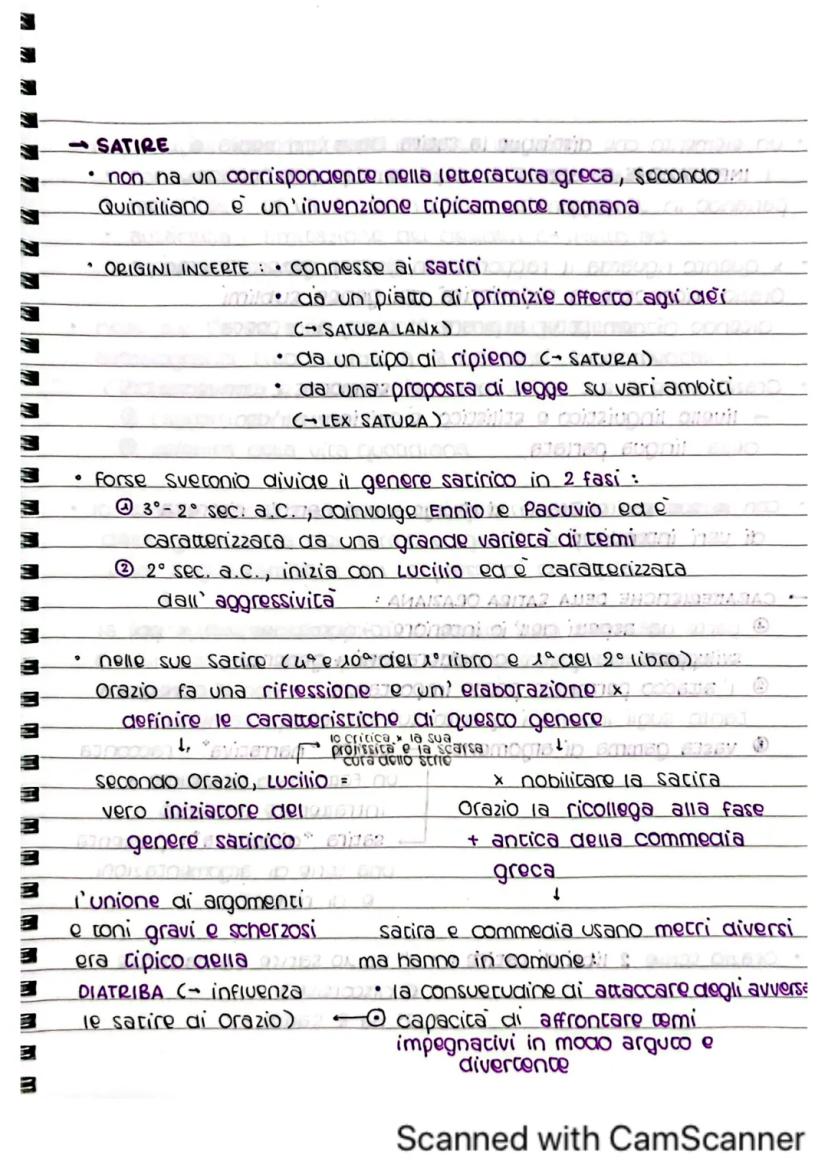 → SATIRE
• non ha un corrispondente nella letteratura greca, secondo
Quintiliano è un'invenzione tipicamente romana
• ORIGINI INCERTE : • connesse ai satiri
• da un piatto di primizie offerto agli dei
(→ SATURA LANX)
• da un tipo di ripieno (→ SATURA)
• da una proposta di legge su vari ambiti
(→ LEX SATURA)
• Forse Svetonio divide il genere satirico in 2 fasi :
① 3°- 2° sec. a.C., coinvolge Ennio e Pacuvio ed è
caratterizzata da una grande varietà di temi
② 2° sec. a.C., inizia con Lucilio ed è caratterizzata
dall' aggressività
• nelle sue Satire (4ª e 10ª del 1° libro e 1ª del 2° libro)
Orazio fa una riflessione e un' elaborazione x
definire le caratteristiche di questo genere
↓ ↓
→ lo critica x la sua
prolissità e la scarsa
cura dello stile
secondo Orazio, Lucilio =
vero iniziatore del
genere satirico
x nobilitare la satira
Orazio la ricollega alla fase
+ antica della commedia
greca
↓
l'unione di argomenti
e toni gravi e scherzosi
era tipico della
DIATRIBA (→ influenza
le satire di Orazio)
satira e commedia usano metri diversi
ma hanno in comune :
• la consuetudine di attaccare degli avverse
← • capacità di affrontare temi
impegnativi in modo arguto e
divertente
Scanned with CamScanner